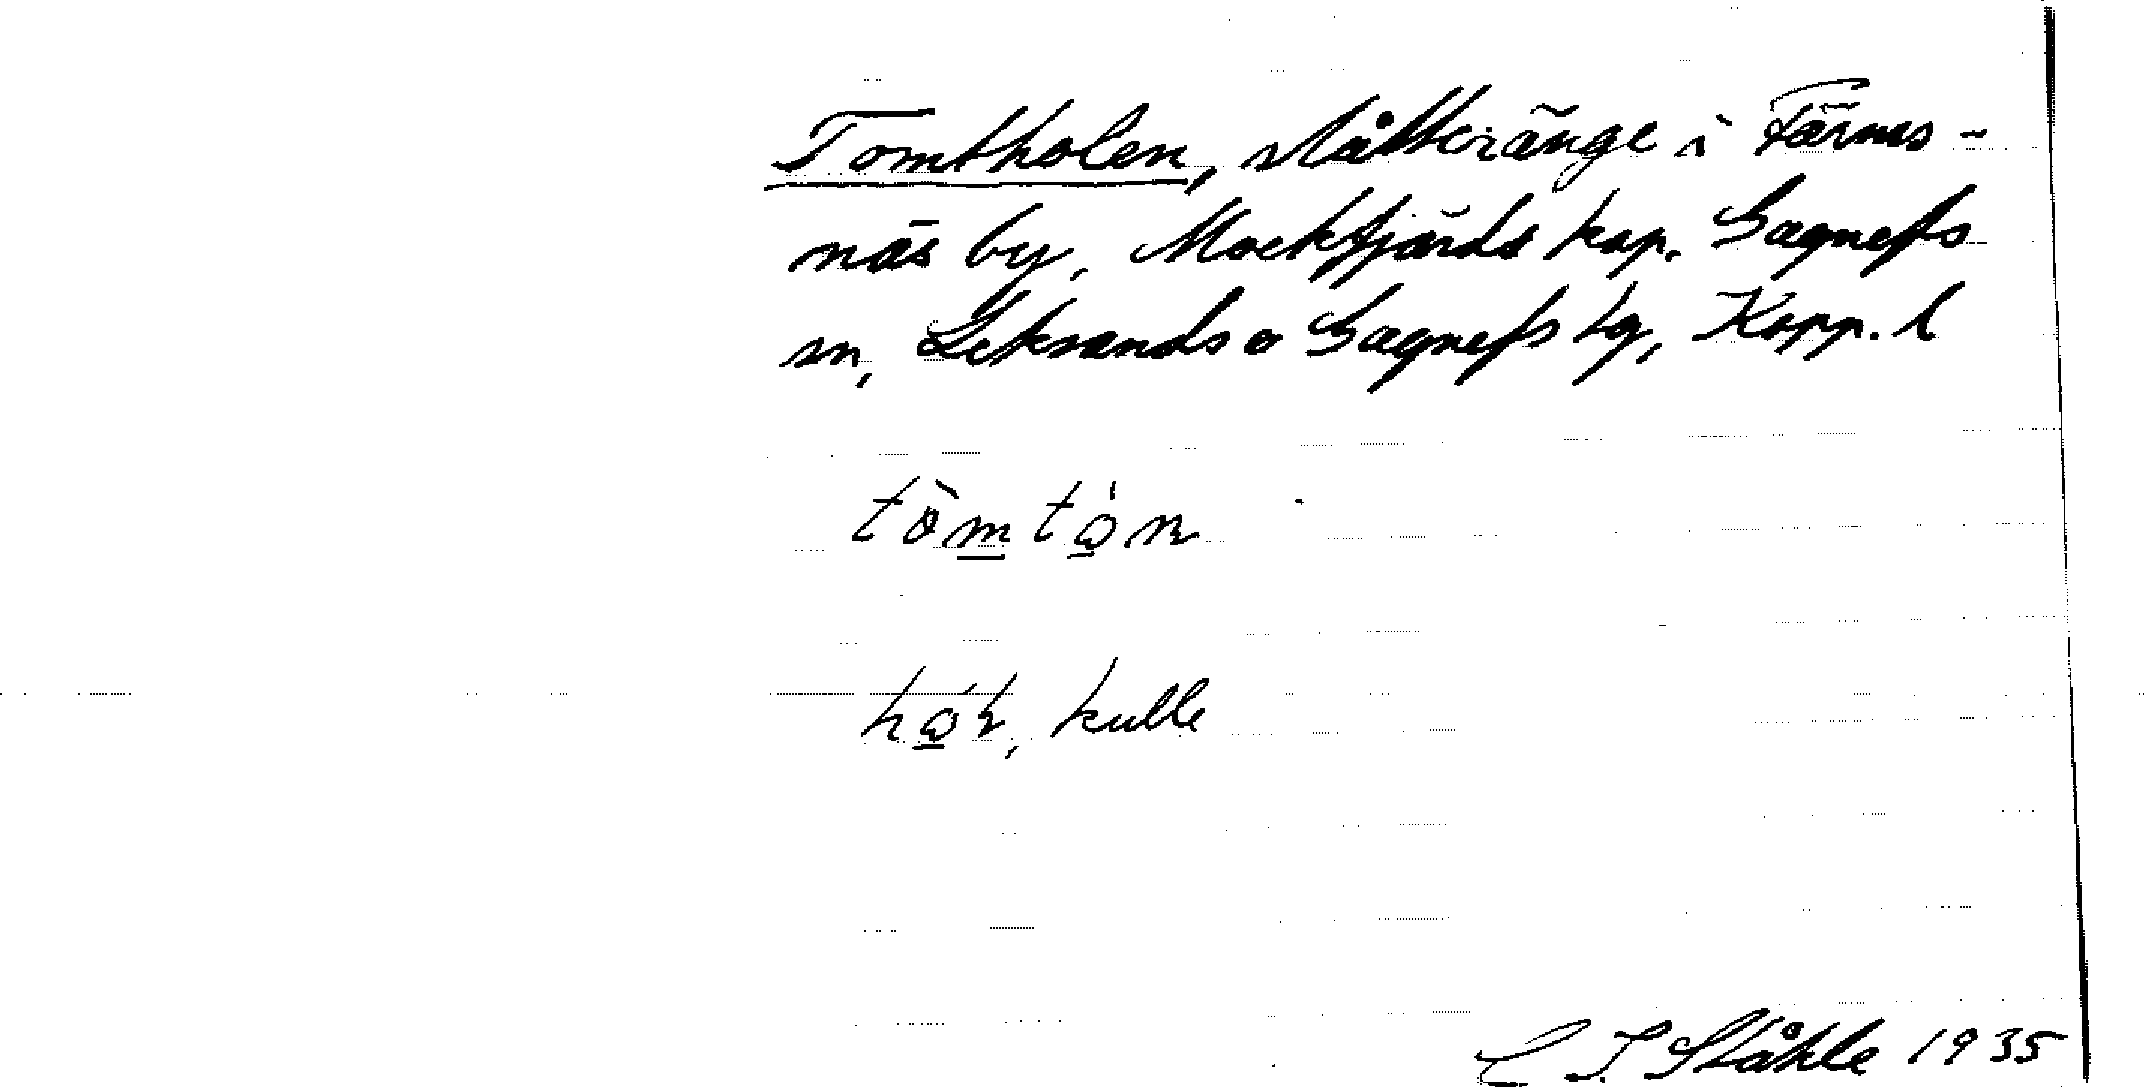 Tomtholen, slåtteränge i Färns-
näs by, Mockfjärds kap. Gagnefs
sn, Leksands o Gagnefs tg, Kopp. l
kulle
C I Ståhle 1935